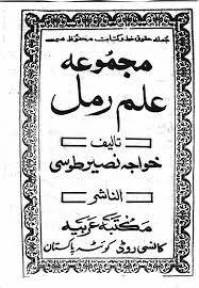 جملہ حقوق خط و کتابت محفوظ ہیں
مجموعه
علم رمل
تالیف
خواجہ نصیر طوسی
الناشر
مکتبہ عربیہ
کانسی روڈ کوئٹہ پاکستان